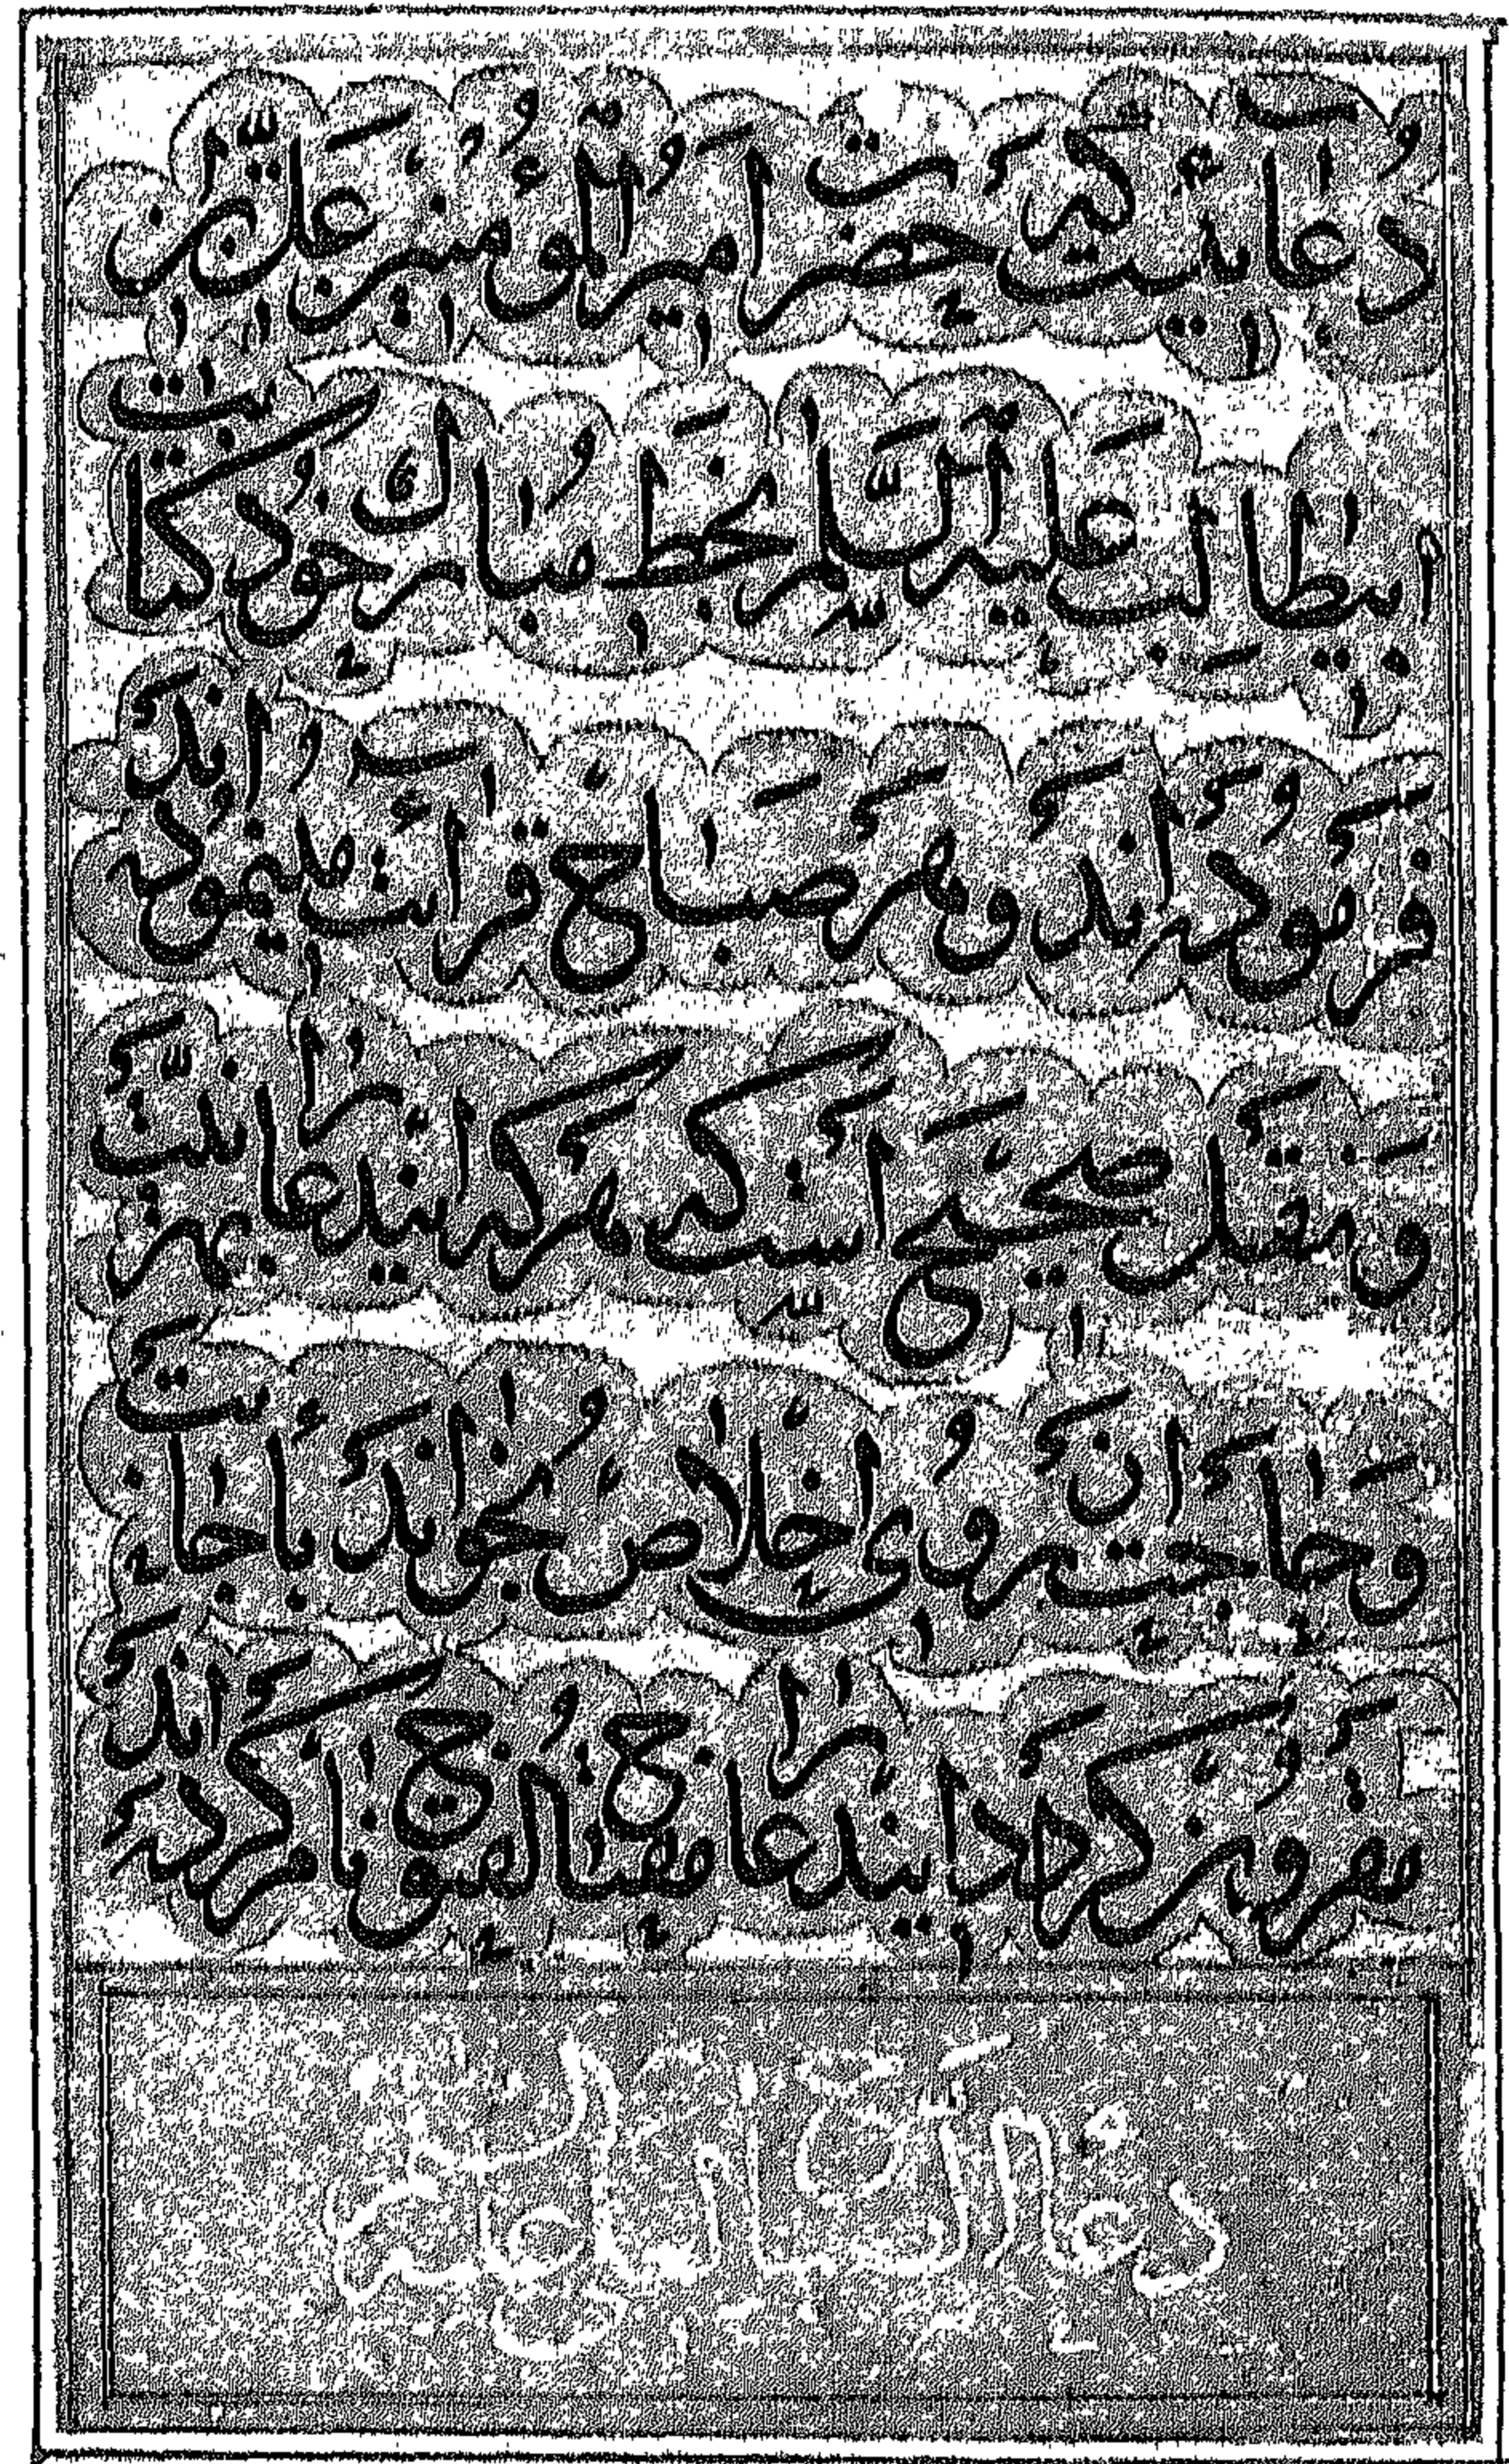 دعائیست که حضرت امیر المؤمنین علی بن
ابیطالب علیه السلام بخط مبارک خود کتابت
فرموده اند و هر صباح قرائت میفرموده اند
و نقل صحیح است که هر که ایندعا را به نیت
و حاجتی روی اخلاص بخواند باجابت
مقرون کردد ایندعا را مفتاح الفرج نام کرده اند
دعاء الصباح